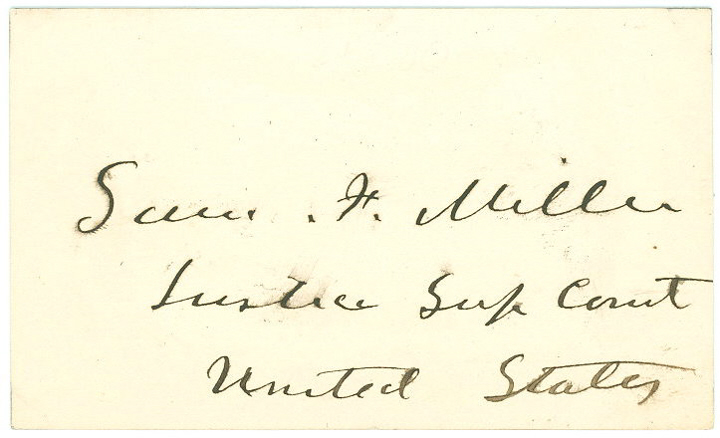 Sam. F. Miller
Justice Sup Court
United States